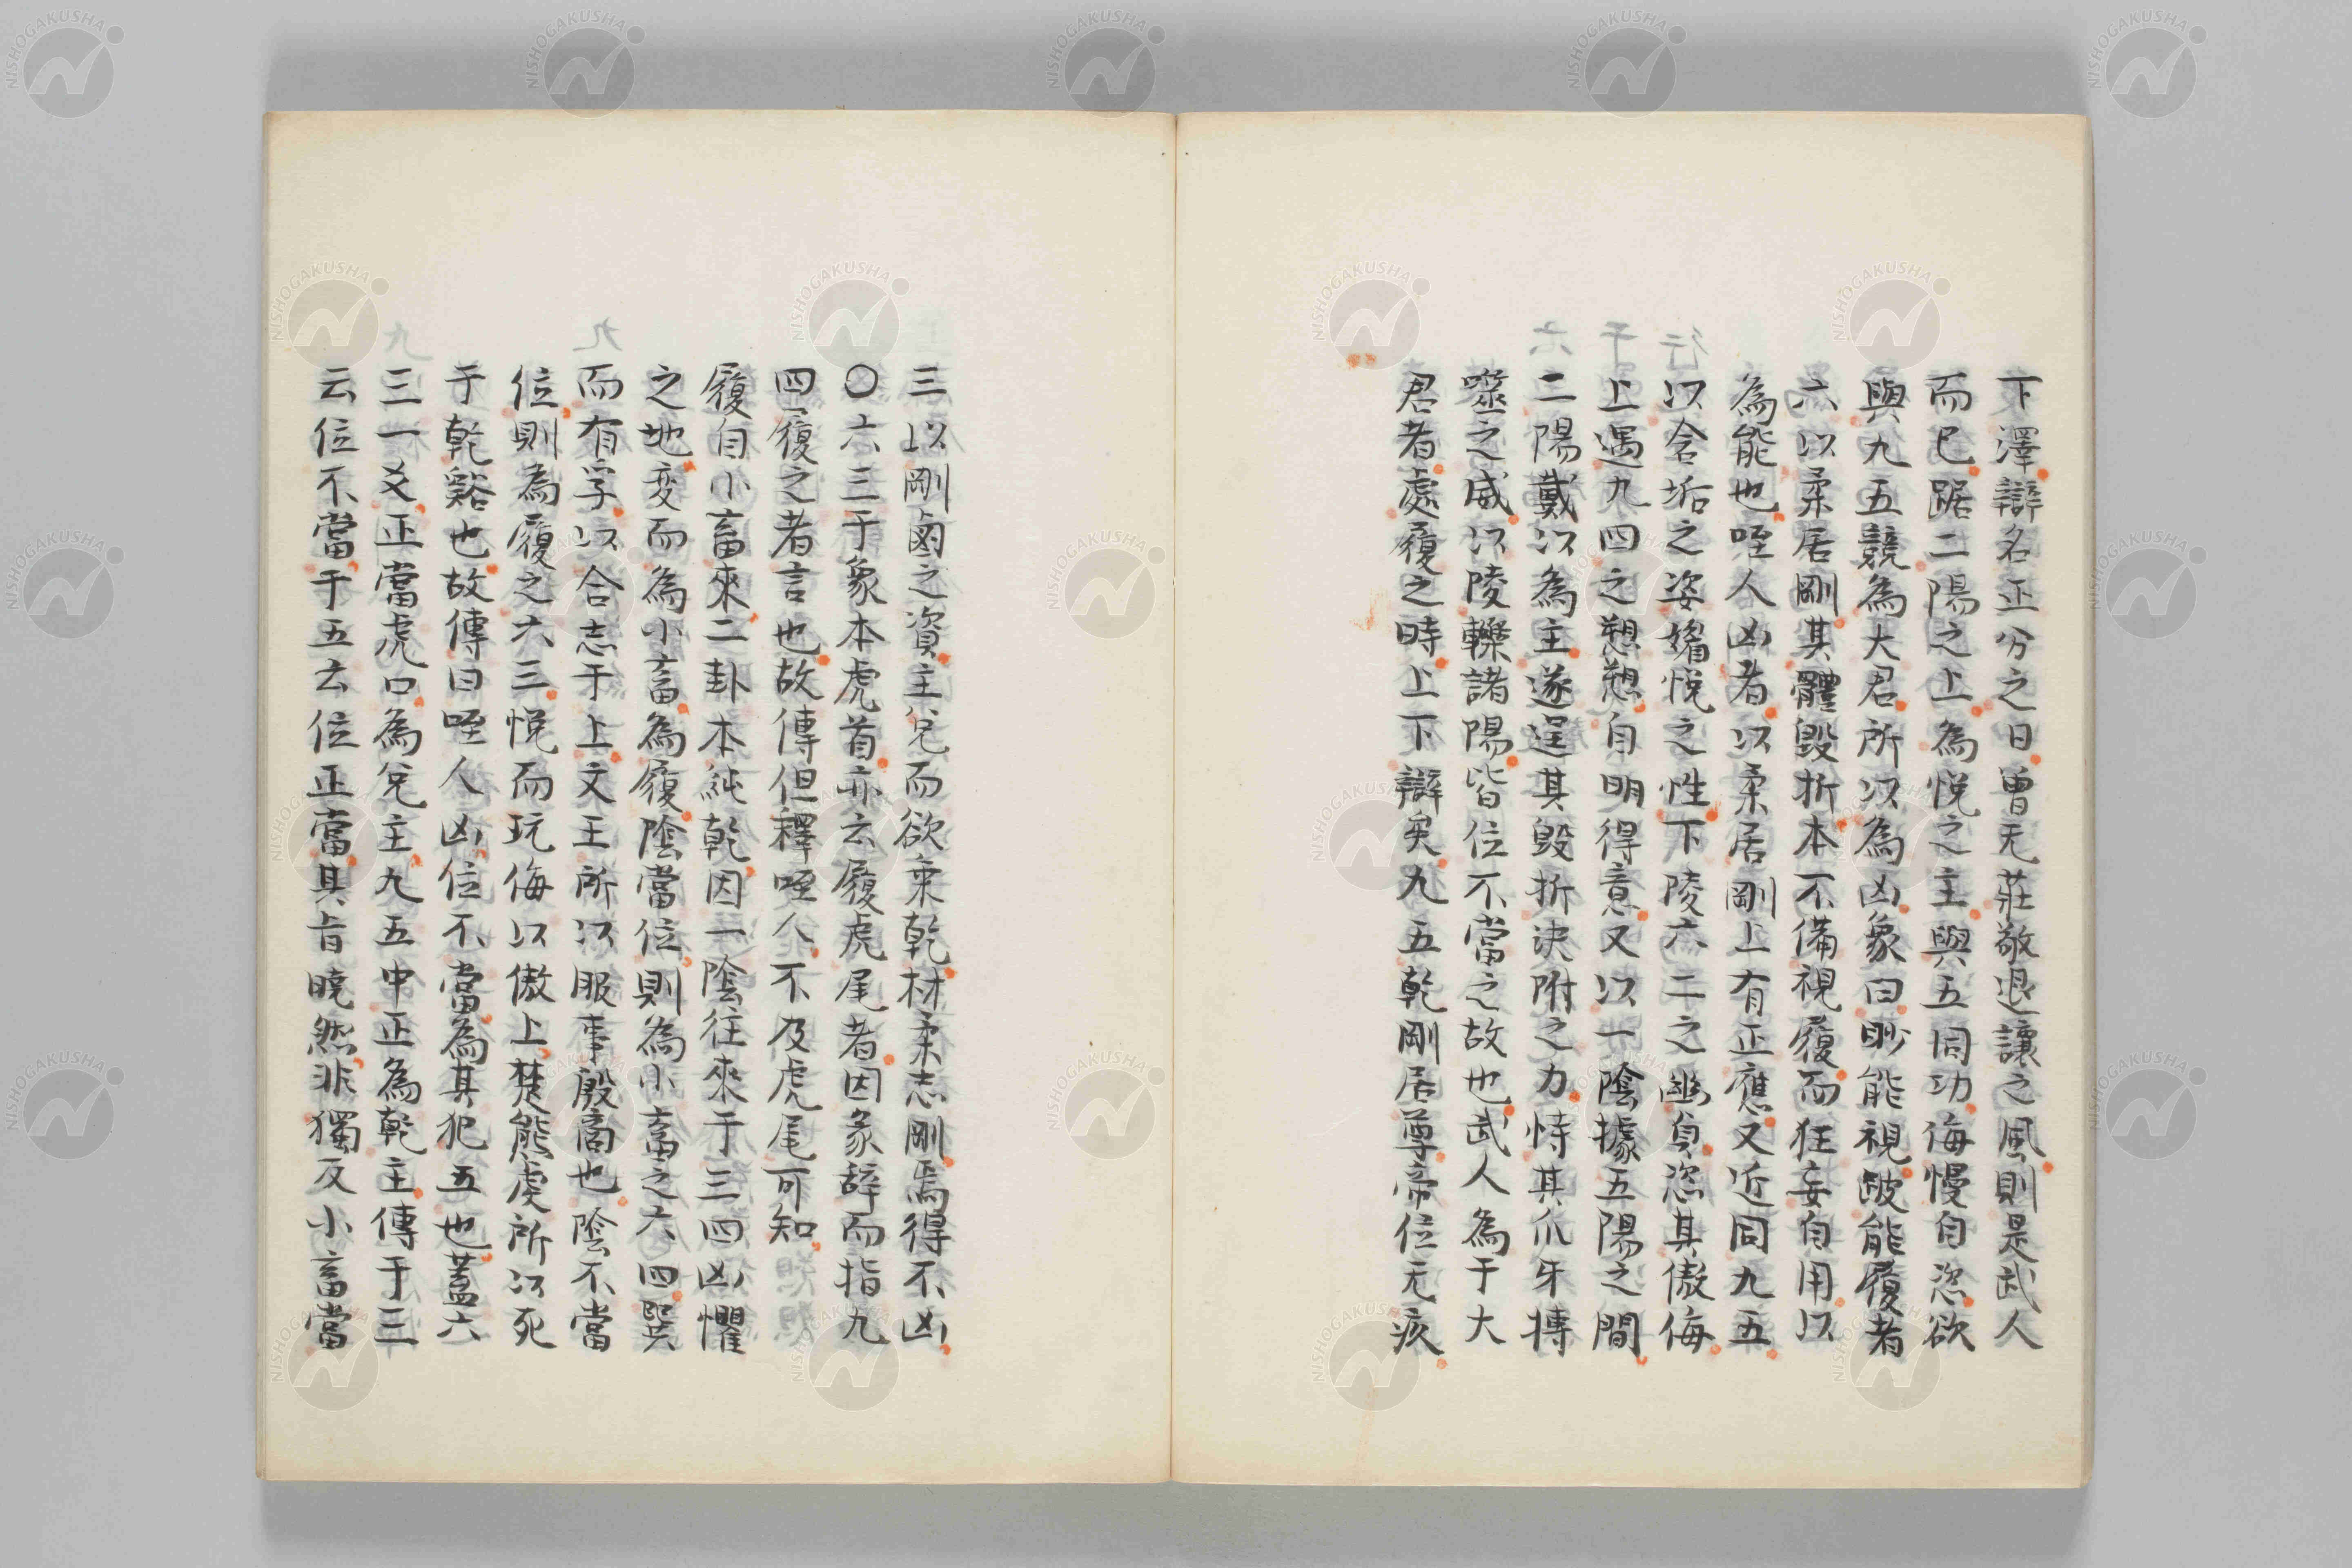 下澤辯名正分之日曽无莊敬退讓之風則是武人
而已踞二陽之上為悅之主與五同功侮慢自恣欲
與九五競為大君所以為凶象曰眇能視跛能履者
六以柔居剛其體毀折本不備視履而狂妄自用以
為能也咥人凶者以柔居剛上有正應又近同九五
以含垢之姿媚悅之性下陵六二之幽貞恣其傲侮
上遇九四之愬愬自明得意又以一陰據五陽之間
二陽戴以為主遂逞其毀折決附之力恃其爪牙摶
噬之威以陵轢諸陽皆位不當之故也武人為于大
君者處履之時上下辯矣九五乾剛居尊帝位无疚
三以剛鹵之資主兌而欲乗乾材柔志剛焉得不凶
〇六三于象本虎首亦云履虎尾者因彖辞而指九
四履之者言也故傳但釋咥人不及虎尾可知
履自小畜來二卦本純乾因一陰往來于三四凶懼
之地変而為小畜為履陰當位則為小畜之六四巽
而有孚以合志于上文王所以服事殷商也陰不當
位則為履之六三悅而玩侮以傲上楚熊虔所以死
于乾谿也故傳曰咥人凶位不當為其犯五也蓋六
三一爻正當虎口為兌主九五中正為乾主傳于三
云位不當于五云位正當其旨曉然非獨反小畜當